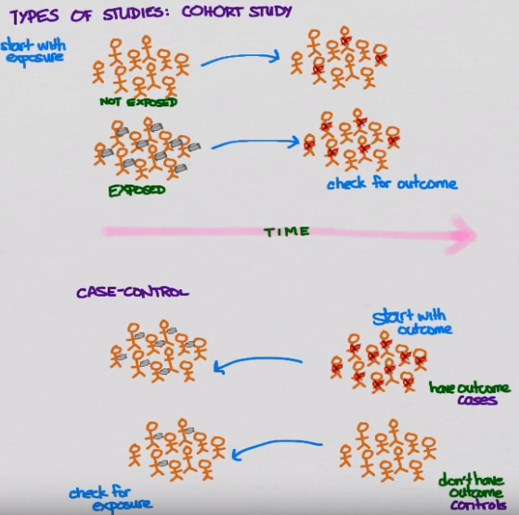 TYPES OF STUDIES: COHORT STUDY
start with
exposure
NOT EXPOSED
EXPOSED
check for outcome
TIME
CASE-CONTROL
start with
outcome
have outcome
cases
check for
exposure
don't have
outcome
controls